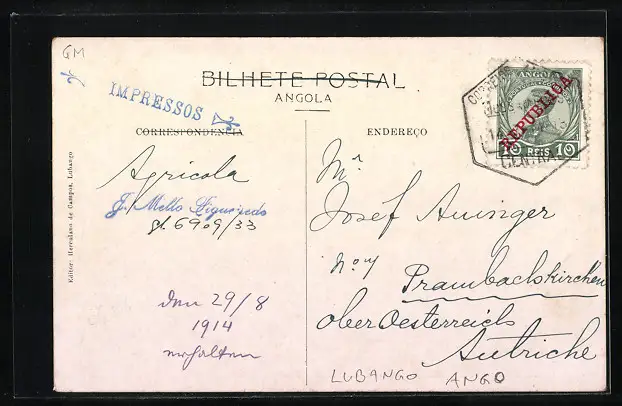 GM
BILHETE POSTAL
ANGOLA
IMPRESSOS
CORRESPONDENCIA
ENDEREÇO
CORREIO
ANGOLA
REPUBLICA
10 REIS 10
CENTRAL
Agricola
J. Mello Figueiredo
gl. 6909/33
Mr
Josef Auinger
No 4
Prambachskirchen
ober Oesterreich
Autriche
den 29/8
1914
erhalten
Editor: Herculano de Campos, Lubango
LUBANGO ANGO